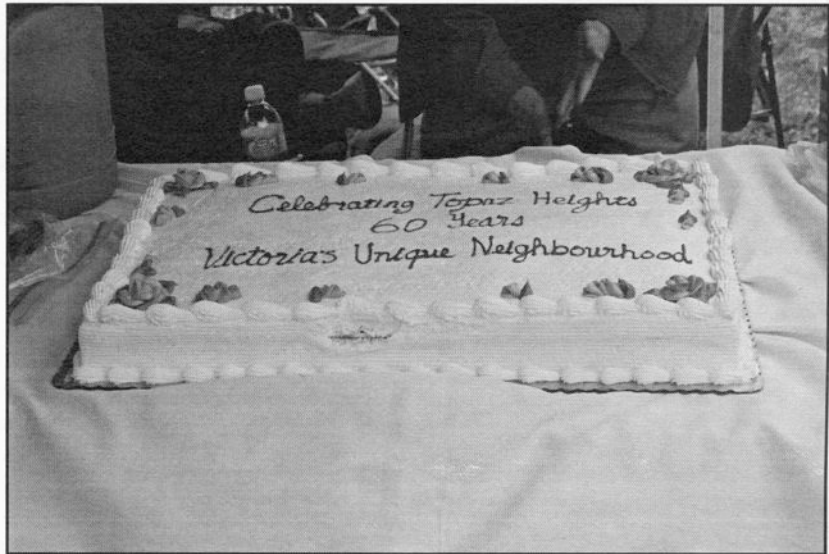 Celebrating Topaz Heights
60 Years
Victoria's Unique Neighbourhood